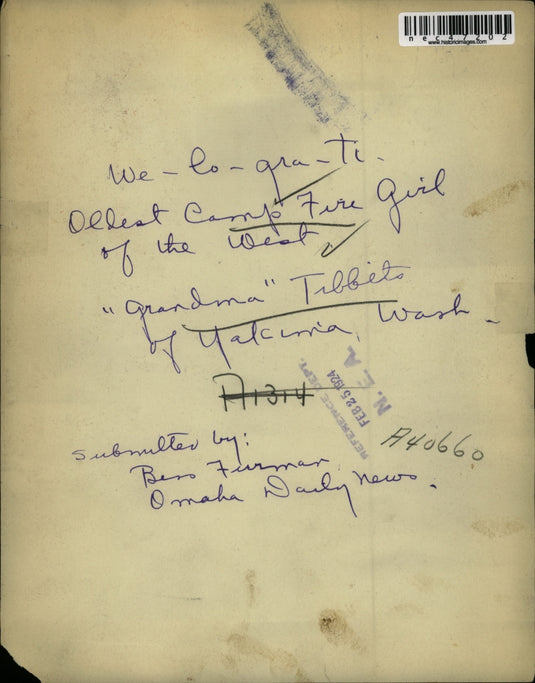 nec47202
www.historicimages.com
We-lo-gra-Ti-
Oldest Camp Fire Girl
of the West
"Grandma" Tibbits
of Yakima, Wash.
A1314
REFERENCE DEPT.
FEB 25 1924
N.E.A.
A40660
Submitted by:
Bess Furman
Omaha Daily News.